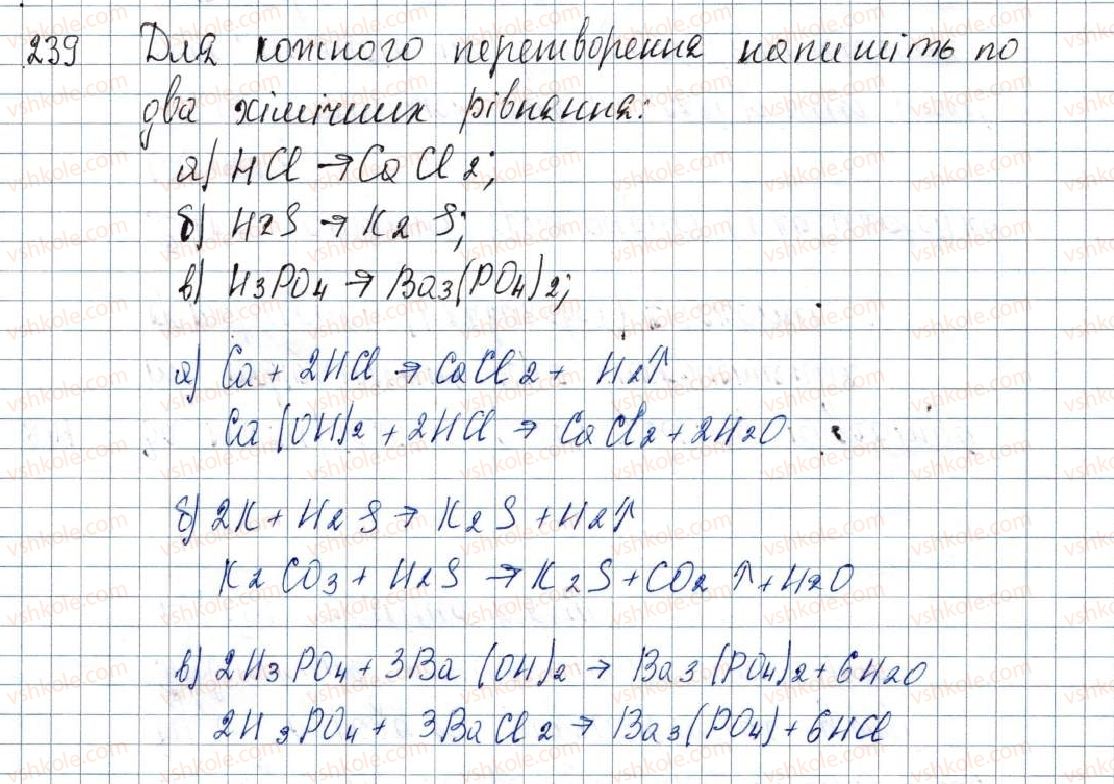 239 Для кожного перетворення напишіть по
два хімічних рівняння:
а) HCl → CaCl2;
б) H2S → K2S;
в) H3PO4 → Ba3(PO4)2;
а) Ca + 2HCl → CaCl2 + H2↑
Ca(OH)2 + 2HCl → CaCl2 + 2H2O
б) 2K + H2S → K2S + H2↑
K2CO3 + H2S → K2S + CO2↑ + H2O
в) 2H3PO4 + 3Ba(OH)2 → Ba3(PO4)2 + 6H2O
2H3PO4 + 3BaCl2 → Ba3(PO4) + 6HCl